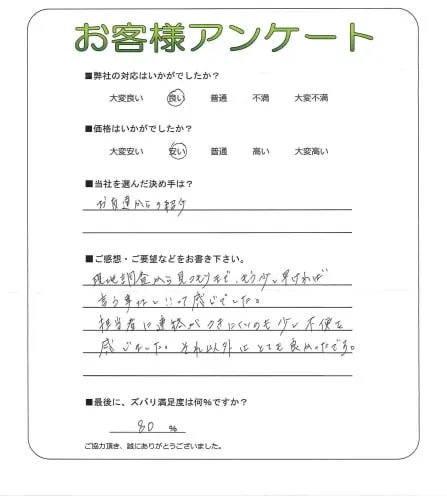 お客様アンケート
■弊社の対応はいかがでしたか?
大変良い 良い 普通 不満 大変不満
■価格はいかがでしたか?
大変安い 安い 普通 高い 大変高い
■当社を選んだ決め手は?
お友達からの紹介
■ご感想・ご要望などをお書き下さい。
現地調査から見つもりまで、もう少し早ければ
言う事なしって感じでした。
担当者に連絡がつきにくいのも少し不便を
感じました。それ以外はとても良かったです。
■最後に、ズバリ満足度は何%ですか?
80 %
ご協力頂き、誠にありがとうございました。